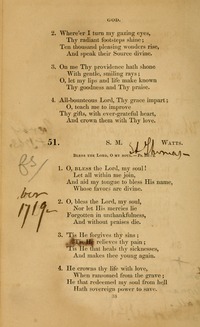 GOD.
2. Where'er I turn my gazing eyes,
Thy radiant footsteps shine;
Ten thousand pleasing wonders rise,
And speak their Source divine.
3. On me Thy providence hath shone
With gentle, smiling rays;
O, let my lips and life make known
Thy goodness and Thy praise.
4. All-bounteous Lord, Thy grace impart;
O, teach me to improve
Thy gifts, with ever-grateful heart,
And crown them with Thy love.
51. S. M. WATTS.
St Thomas
BLESS THE LORD, O MY SOUL.
1719
1. O, BLESS the Lord, my soul!
Let all within me join,
And aid my tongue to bless His name,
Whose favors are divine.
2. O, bless the Lord, my soul,
Nor let His mercies lie
Forgotten in unthankfulness,
And without praises die.
3. 'Tis He forgives thy sins;
relieves thy pain;
'Tis He that heals thy sicknesses,
And makes thee young again.
4. He crowns thy life with love,
When ransomed from the grave;
He that redeemed my soul from hell
Hath sovereign power to save.